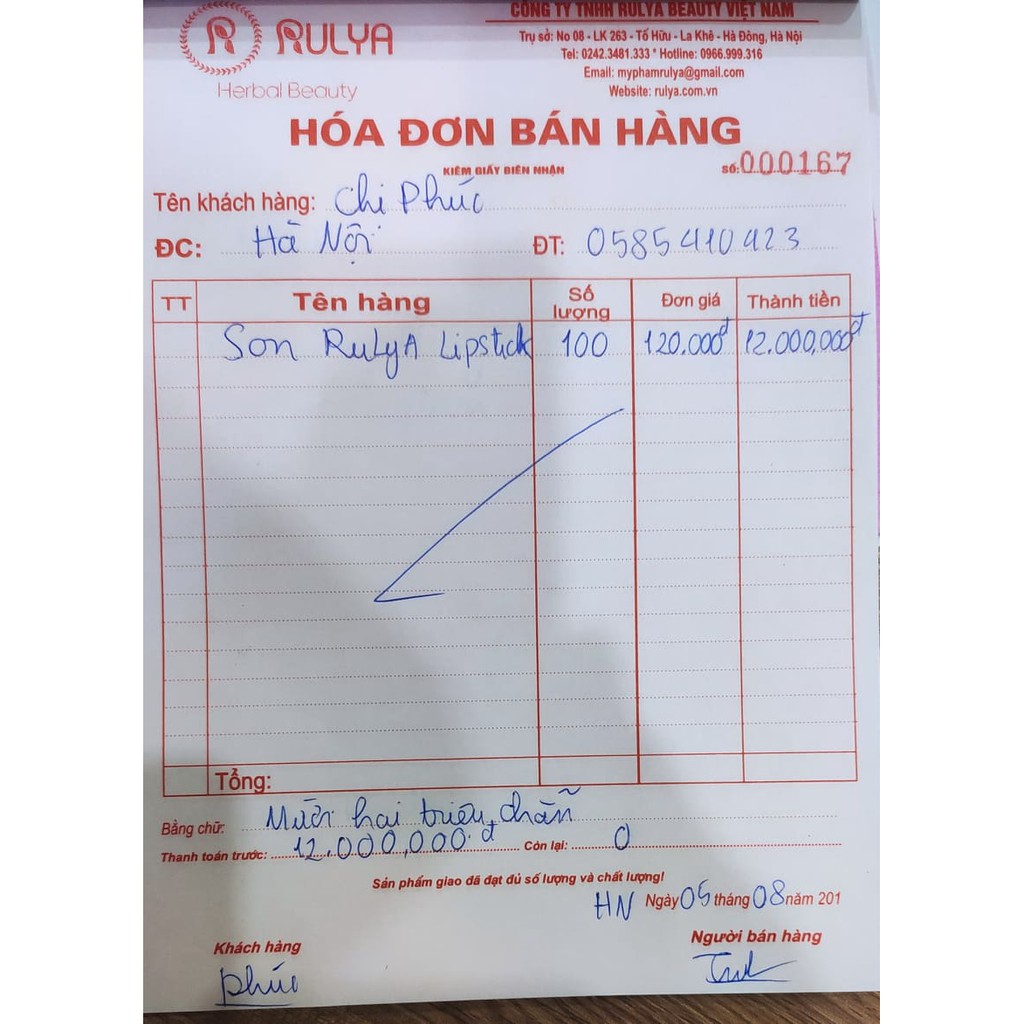 RULYA
Herbal Beauty
CÔNG TY TNHH RULYA BEAUTY VIỆT NAM
Trụ sở: No 08 - LK 263 - Tố Hữu - La Khê - Hà Đông, Hà Nội
Tel: 0242.3481.333 * Hotline: 0966.999.316
Email: myphamrulya@gmail.com
Website: rulya.com.vn
HÓA ĐƠN BÁN HÀNG
KIÊM GIẤY BIÊN NHẬN
Số: 000167
Tên khách hàng: Chị Phúc
ĐC: Hà Nội ĐT: 0585410423
TT Tên hàng Số lượng Đơn giá Thành tiền
Son RuLyA Lipstick 100 120.000đ 12.000,000đ
Tổng:
Bằng chữ: Mười hai triệu chẵn
Thanh toán trước: 12.000,000.đ Còn lại: 0
Sản phẩm giao đã đạt đủ số lượng và chất lượng!
HN Ngày 05 tháng 08 năm 201
Khách hàng Người bán hàng
Phúc